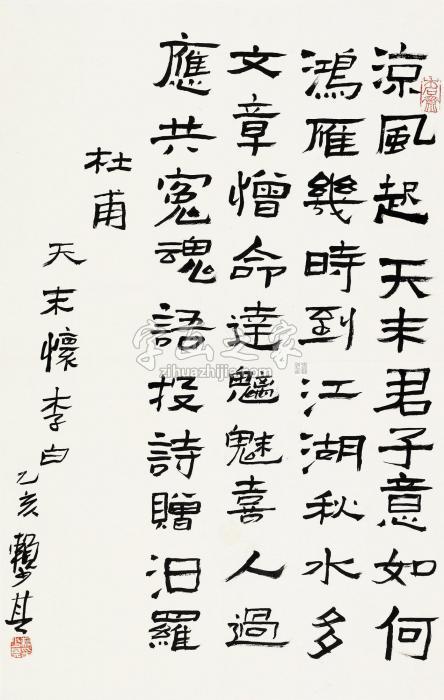 涼風起天末君子意如何
鴻雁幾時到江湖秋水多
文章憎命達魑魅喜人過
應共冤魂語投詩贈汨羅
杜甫
天末懷李白
乙亥
賴少其
字画之家
zihuazhijia.com